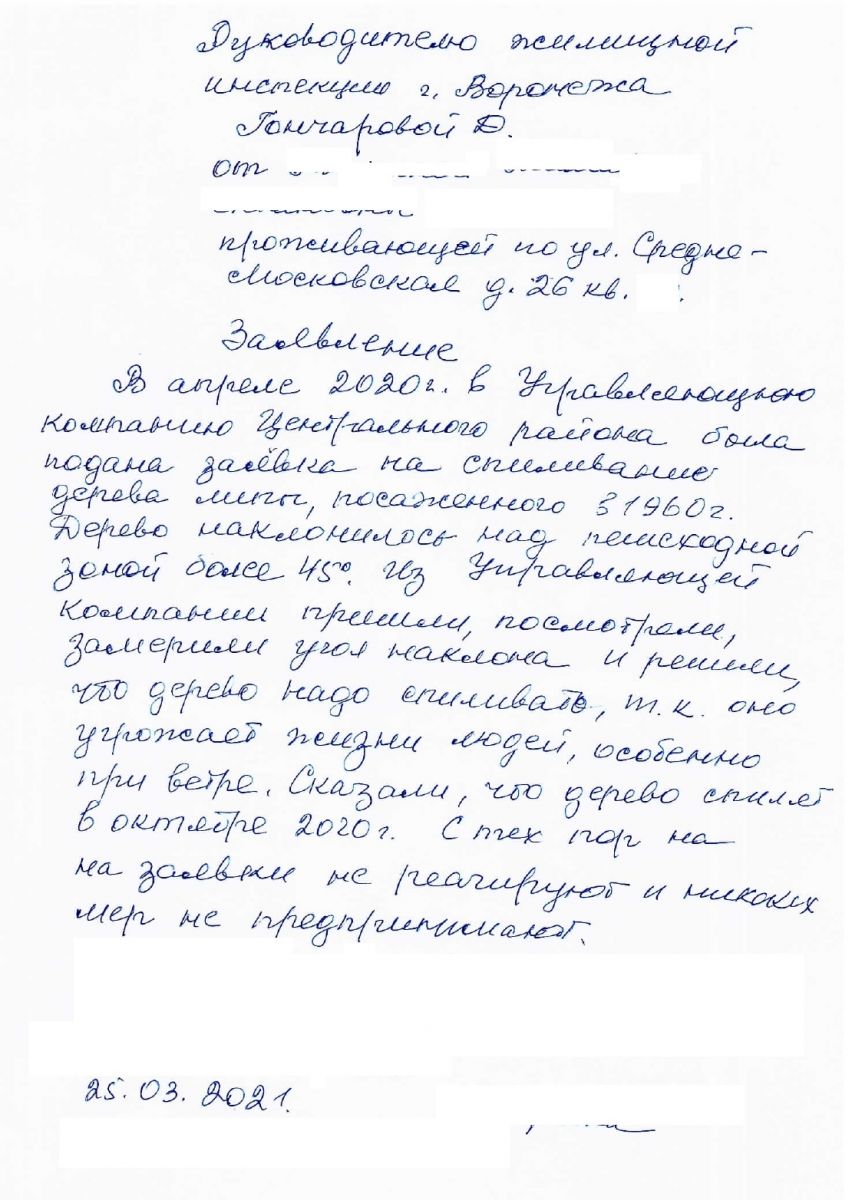 Руководителю жилищной
инспекции г. Воронежа
Гончаровой Д.
от
проживающей по ул. Средне-
Московская д. 26 кв.
Заявление
В апреле 2020г. в Управляющую
компанию Центрального района была
подана заявка на спиливание
дерева липы, посаженного в 1960г.
Дерево наклонилось над пешеходной
зоной более 45°. Из Управляющей
компании пришли, посмотрели,
замерили угол наклона и решили,
что дерево надо спиливать, т.к. оно
угрожает жизни людей, особенно
при ветре. Сказали, что дерево спилят
в октябре 2020г. С тех пор на
на заявки не реагируют и никаких
мер не предпринимают.
25.03.2021.